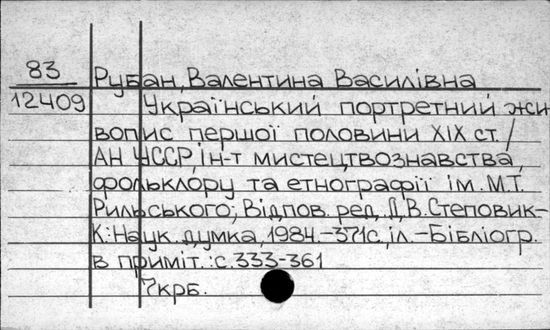 83 Рубан, Валентина Василівна
12409 Український портретний жи
вопис першої половини XIX ст. /
АН УССР, ін-т мистецтвознавства,
фольклору та етнографії ім. М.Т.
Рильського; Відпов. ред. Д.В. Степовик-
К.: Наук. думка, 1984.-371с., іл.-Бібліогр.
в приміт.: с. 333-361
7крб.